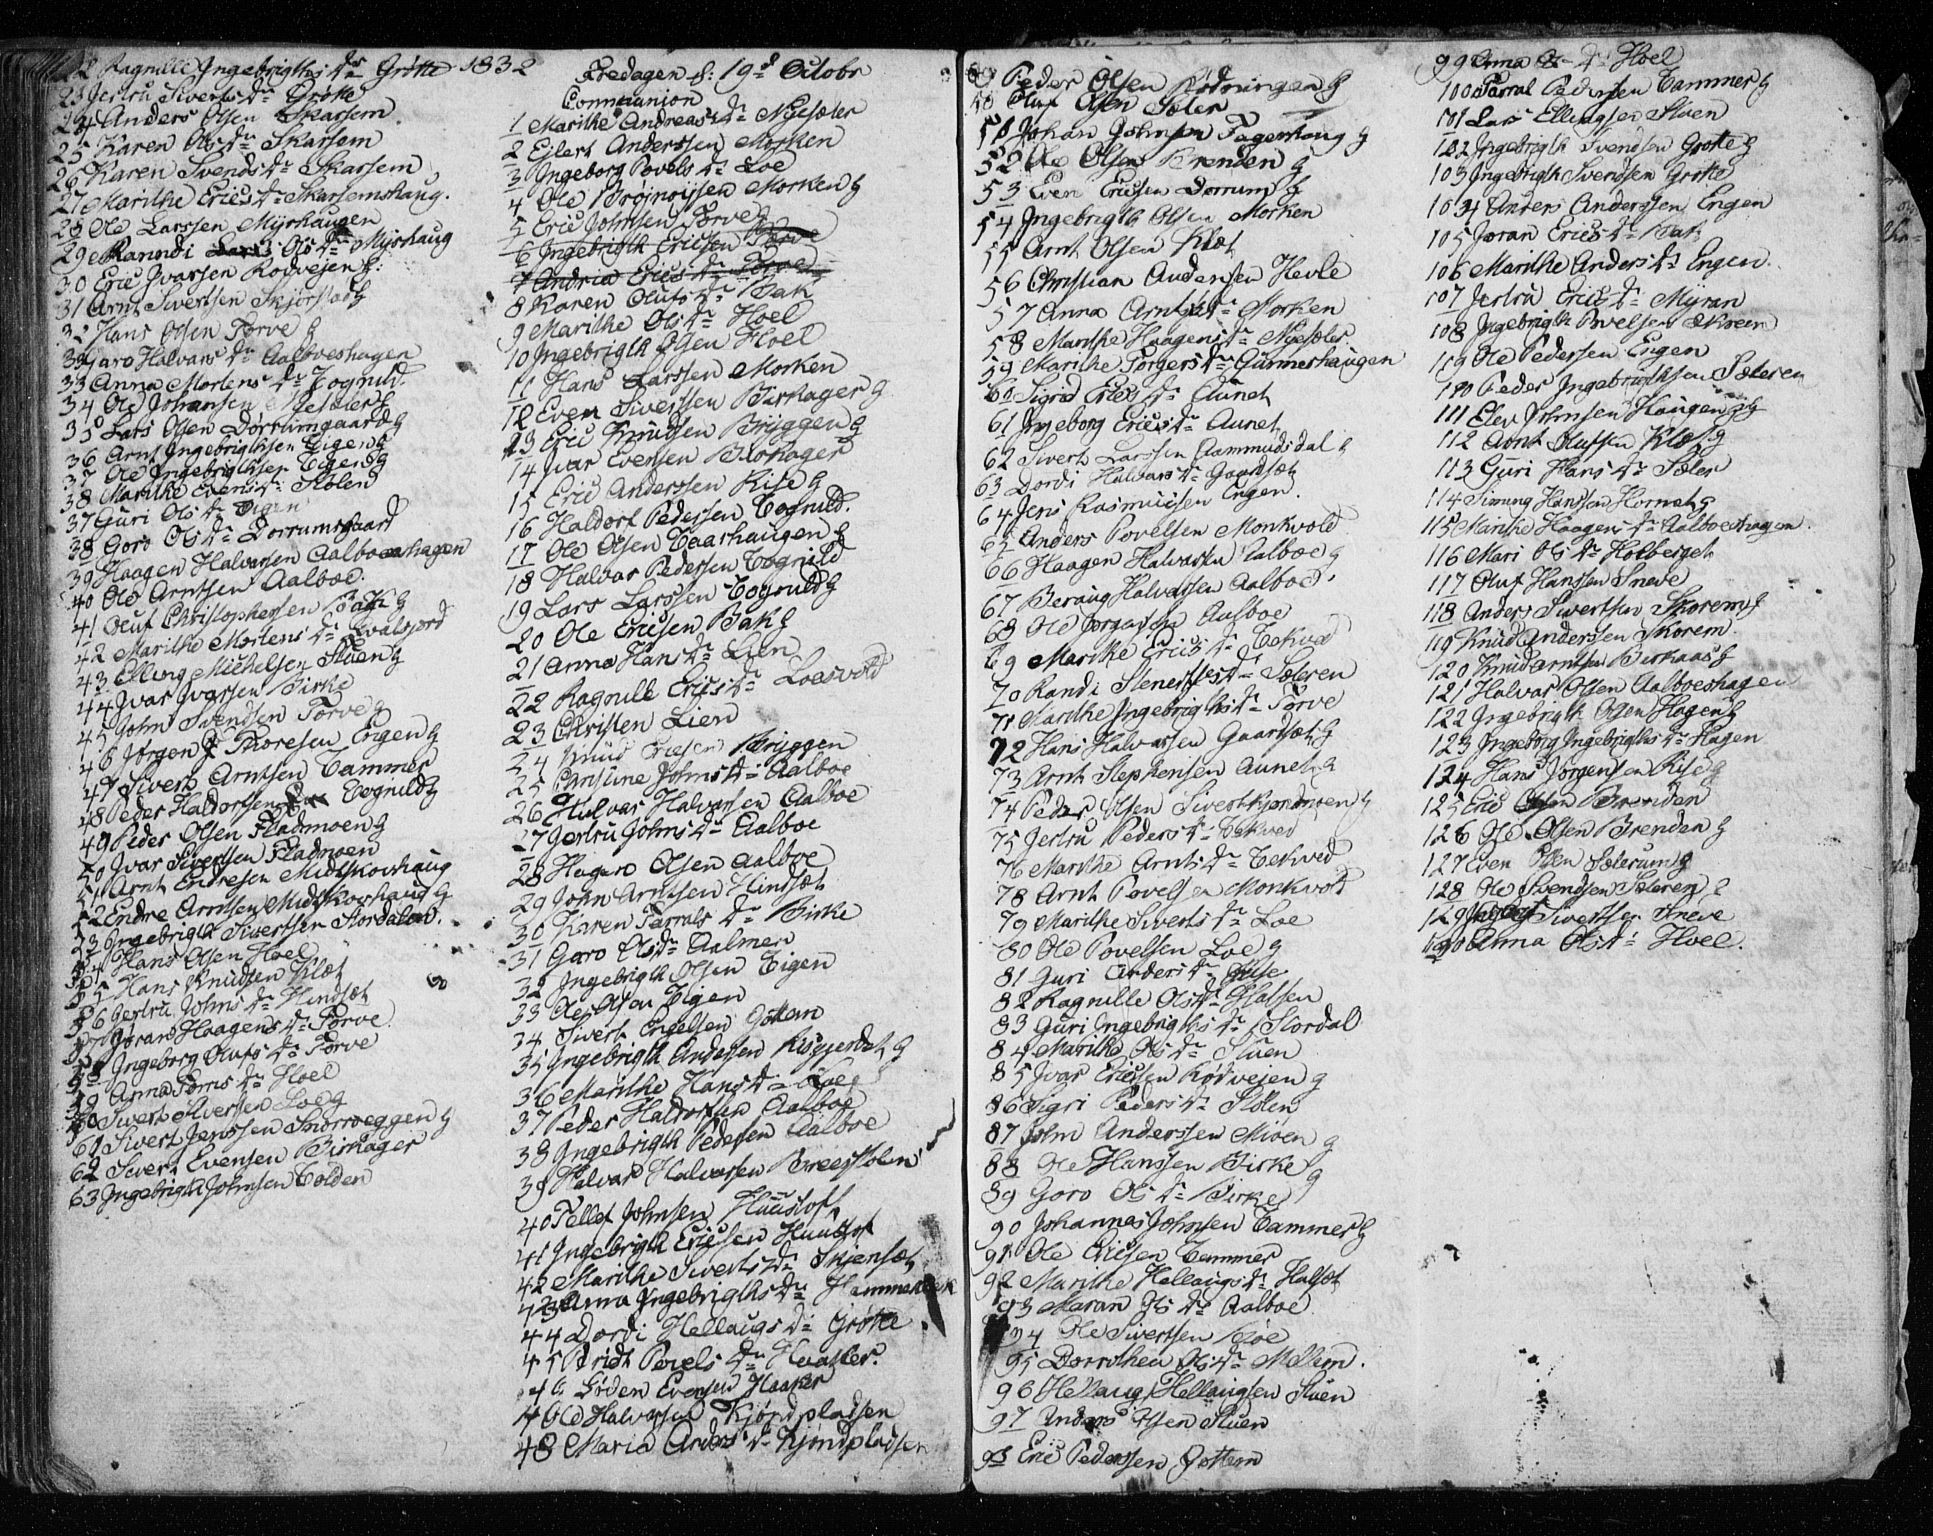 22 Ragnille Ingebrigths Dr Grötte 1832
23 Jertru Siverts Dr Grötte
24 Anders Olsen Skarsem
25 Karen Ols Dr Skarsem
26 Karen Svends Dr Skarsem
27 Marithe Erics Dr Skarsemshaug.
28 Ole Larssen Myrhaugen
29 Ranndi Ols Dr Myrhaug
30 Eric Ivarsen Rodvejen g:
31 Arnt Sivertsen Skjörstad g
32 Hans Olsen Torve g
33 Goro Halvars Dr Aalboeshagen
33 Anna Mortens Dr Tognild.
34 Ole Johansen Myesæter g
35 Lars Olsen Dorrumgaard g
36 Arnt Ingebrigthsen Eigen g
37 Ole Ingebrigthsen Eigen g
38 Marithe Evens Dr Stölen
37 Guri Ols Dr Eigen
38 Goro Ols Dr Dorrumsgaard
39 Haagen Halvorsen Aalboeshagen
40 Ole Arntsen Aalboe.
41 Oluf Christophersen Bak g
42 Marithe Mortens Dr
43 Elling Michelsen Stuen g
44 Ivar Ivarsen Birke
45 John Svendsen Torve g
46 Jörgen Thoresen Engen g
47 Sivert Arntsen Tammer
48 Peder Haldorsen Tognild g
49 Peder Olsen Fladmoen g
50 Ivar Sivertsen Fladmoen
51 Arnt Endresen Midtskovhaug
52 Endre Arntsen Midtskovhaug g
53 Ingebrigth Sivertsen Stordalen.
54 Hans Olsen Hoel
55 Hans Knudsen Klæt
56 Jertru Johns Dr Hindsæt
57 Joran Haagens Dr Torve
58 Ingeborg Olufs Dr Torve
59 Anna Dr Hoel
60 Sivert Siversen Loe g
61 Sivert Jenssen Snorroeggen g
62 Sivert Evensen Birkager
63 Ingebrigth Johnsen Volden
Fredagen d: 19d Octobr
Communion
1 Marithe Andreas Dr Myesæter
2 Ejlert Anderssen Morken
3 Ingeborg Povels Dr Loe
4 Ole Bröjnoijsen Morken g
5 Eric Johnsen Torve g
6 Ingebrigth Ericsen Torve
7 Andria Erics Dr Torve
8 Karen Olufs Dr Bak
9 Marithe Ols Dr Hoel
10 Ingebrigth Olsen Hoel
11 Hans Larssen Morken
12 Even Sivertsen Birkager g
13 Eric Knudsen Bryggen g
14 Ivar Evensen Birkager
15 Eric Anderssen Rise g
16 Haldorf Pedersen Tognild.
17 Ole Olsen Taarhaugen g
18 Halvar Pedersen Tognild
19 Lars Larssen Tognild g
20 Ole Ericsen Bak g
21 Anna Hans Dr Lien
22 Ragnille Erics Dr Loesvold
23 Christen Lien
24 Knud Ericsen Bryggen
25 Christine Johns Dr Aalboe
26 Halvar Halvarsen Aalboe
27 Jertru Johns Dr Aalboe
28 Olsen Aalboe
29 John Arntsen Hindsæt
30 Karen Tarrals Dr Birke
31 Goro Ols Dr Aalmen
32 Ingebrigth Olsen Eigen
33 Ole Olsen Eigen
34 Sivert Engelsen Gottem
35 Ingebrigth Andersen Risgjerdet g
36 Marithe Hans Dr Loe
37 Peder Haldorsen Aalboe
38 Ingebrigth Pedersen Aalboe
39 Halvar Halvorsen Breesstölen
40 Tellef Johnsen Huustoft
41 Ingebrigth Ericsen Huustoft
42 Marithe Siverts Dr Skjensæt
43 Anna Ingebrigths Dr Hammerbek
44 Dordi Hellaugs Dr Grötte
45 Bridt Povels Dr
46 Evensen Haaker
47 Ole Halvorsen Kjöndpladsen
48 Maria Anders Dr Kjöndpladsen
49 Peder Olsen Rödningen g
50 Oluf Olsen Sæter
51 Johan Johnsen Fagerhaug g
52 Ole Olsen Brenden g
53 Even Ericsen Dorrum g
54 Ingebrigth Olsen Morken
55 Arnt Olsen Klæt
56 Christian Andersen Hevle
57 Anna Arnts Dr Morken
58 Marithe Haagens Dr Myesæter
59 Marithe Torgers Dr Gunneshaugen
60 Sigrid Erics Dr Aunet
61 Ingeborg Erics Dr Aunet
62 Sivert Larssen Aammudsdal g
63 Dordi Halvars Dr Gaardsæt
64 Jens Rasmussen Engen.
65 Anders Povelsen Monkvold
66 Haagen Halvarsen Aalboe g
67 Beraug Halvarsen Aalboe.
68 Ole Aalboe
69 Marithe Erics Dr Tækved
70 Randi Steners Dr Sæteren
71 Marithe Ingebrigths Dr Torve
72 Hans Halvarsen Gaardsæt g
73 Arnt Stephensen Aunet g
74 Peder Olsen Sivertkjöndmoen g
75 Jertru Peders Dr Tækved
76 Marithe Arnts Dr Tækved
78 Arnt Povelsen Monkvold
79 Marithe Siverts Dr Loe
80 Ole Povelsen Loe g
81 Guri Anders Dr Rise
82 Ragnille Ols Dr
83 Guri Ingebrigths Dr Stordal
84 Marithe Ols Dr Stuen
85 Ivar Ericsen Rödvejen g
86 Sigri Peders Dr Stölen
87 John Anderssen Mioen g
88 Ole Hanssen Birke g
89 Goro Ols Dr Birke
90 Johannes Johnsen Tammer g
91 Ole Ericsen Tammer
92 Marithe Hellaugs Dr Halsæt
93 Maran Ols Dr Aalboe
94 Ole Sivertsen Böe
95 Dorrothea Ols Dr Mellem.
96 Hellaug Hellaugsen Stuen
97 Anders Olsen Stuen
98 Eric Pederssen Gottem
99 Anna Dr Hoel
100 Tarral Pedersen Tammer g
101 Lars Ellingsen Stuen
102 Ingebrigth Svendsen Grötte g
103 Ingebrigth Svendsen Grötte
104 Anders Anderssen Engen
105 Joran Erics Dr Bak
106 Marithe Anders Dr Engen.
107 Jertru Erics Dr Myran
108 Ingebrigth Povelsen Skreen
109 Ole Pedersen Engen
110 Peder Ingebrigthsen Sæteren
111 Elev Johnsen Haugen g
112 Arnt Olufsen Klæt g
113 Guri Hans Dr Sæter
114 Simung Hanssen Hornet g
115 Marithe Haagens Dr Aalboeshagen.
116 Mari Ols Dr Holberget
117 Oluf Hanssen Sneve
118 Anders Sivertsen Skorem g
119 Knud Anderssen Skorem.
120 Knud Arntsen Birkaas g
121 Halvar Olsen Aalboeshagen
122 Ingebrigth Olsen Hagen g
123 Ingeborg Ingebrigths Dr Hagen
124 Hans Jörgensen Rise g
125 Eric Olsen Brenden
126 Ole Olsen Brenden g
127 Even Olsen Sæterum g
128 Ole Svendsen Sæteren
129 Sivertsen Sneve
130 Anna Ols Dr Hoel.